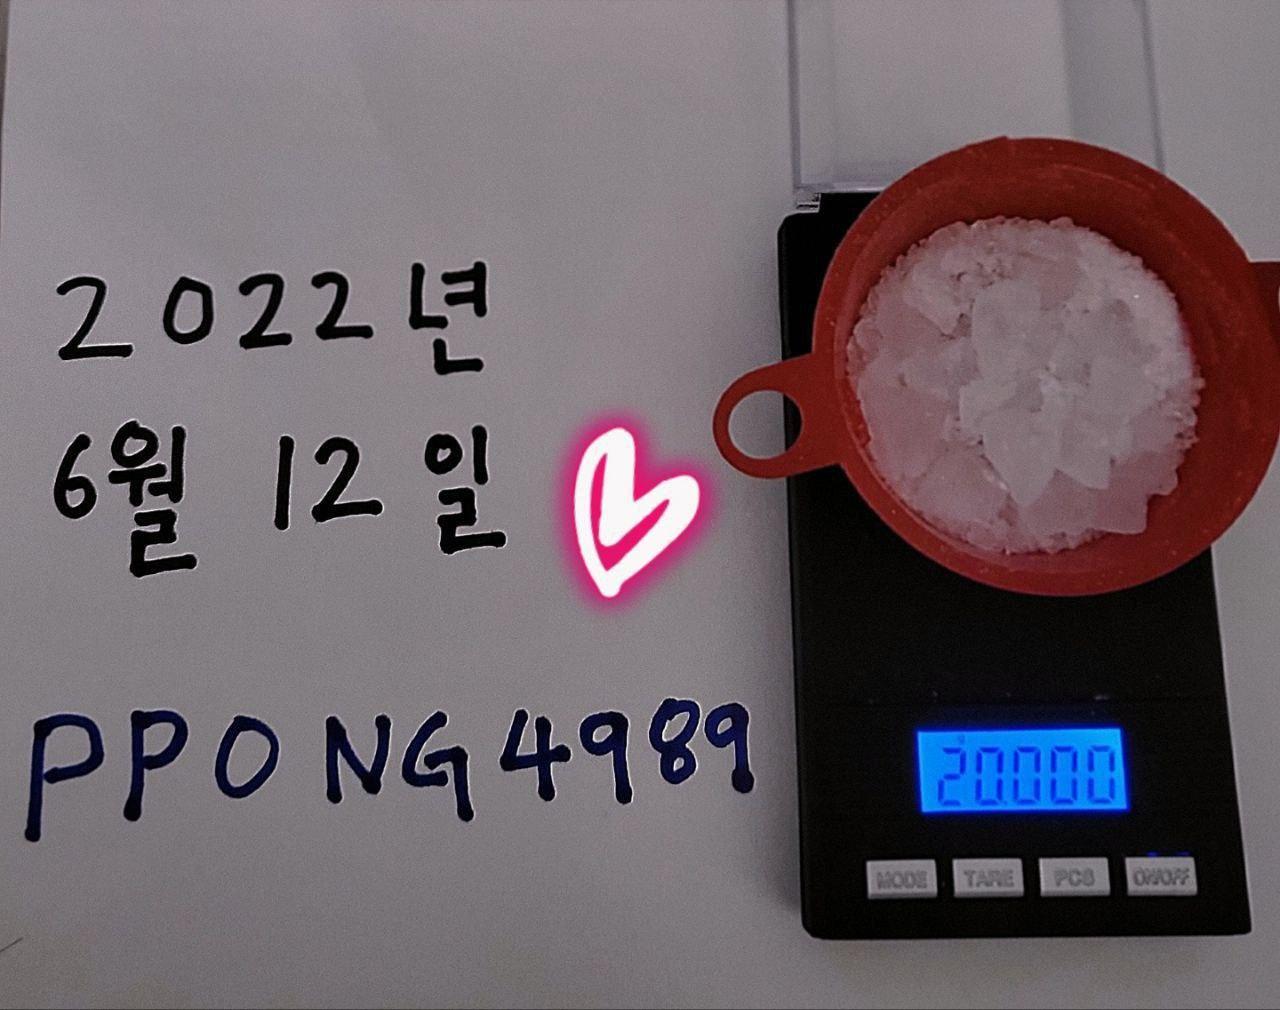 2022년
6월 12일
PPONG4989
20.000
MODE TARE PCS ON/OFF